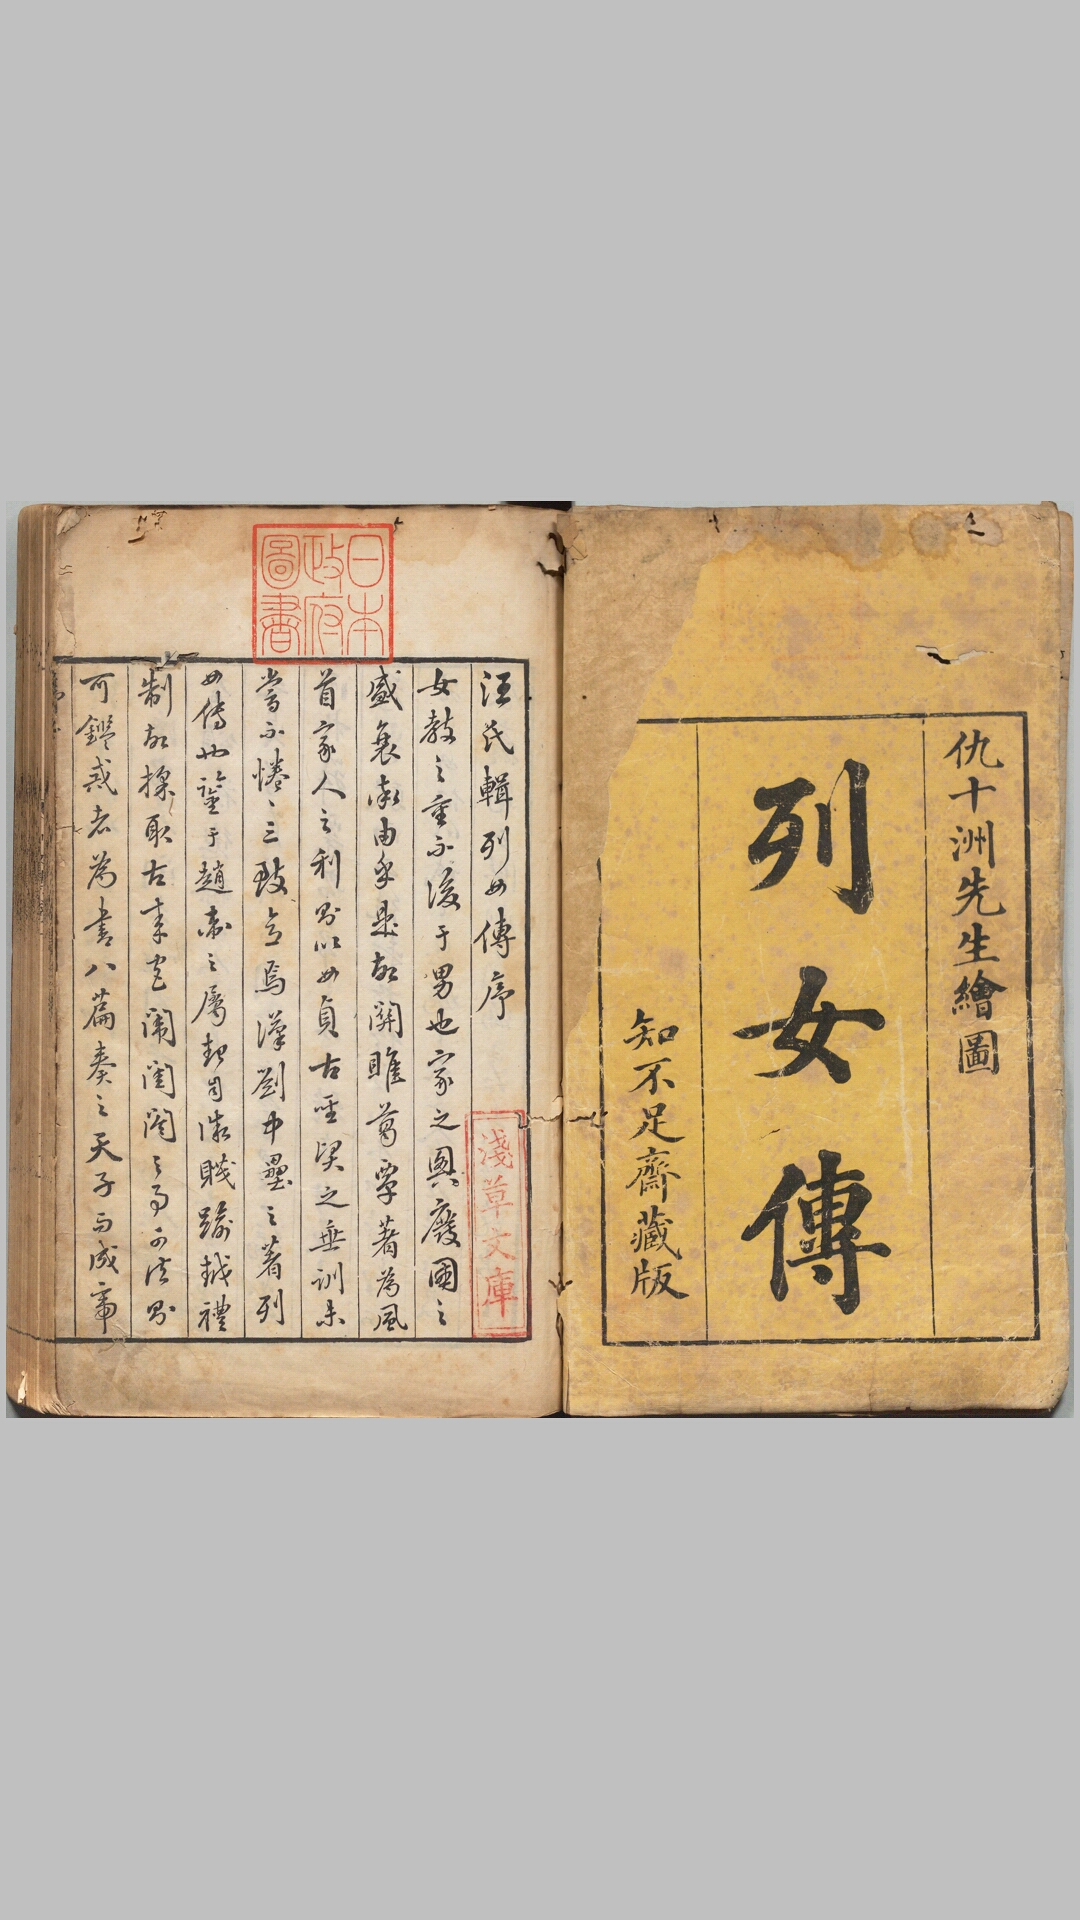 仇十洲先生繪圖
列女傳
知不足齋藏版
日本
政府
圖書
汪氏輯列女傳序
淺草文庫
女教之重不後于男也家之興廢國之
盛衰率由乎是故關雎葛覃著為風
首家人之利則以女貞古聖賢之垂訓未
嘗不惓〻三致意焉漢劉中壘之著列
女傳也鑒于趙衛之屬起自微賤踰越禮
制故採取古來宮闈閨閤之事可法則
可鑑戒者為書八篇奏之天子与成帝